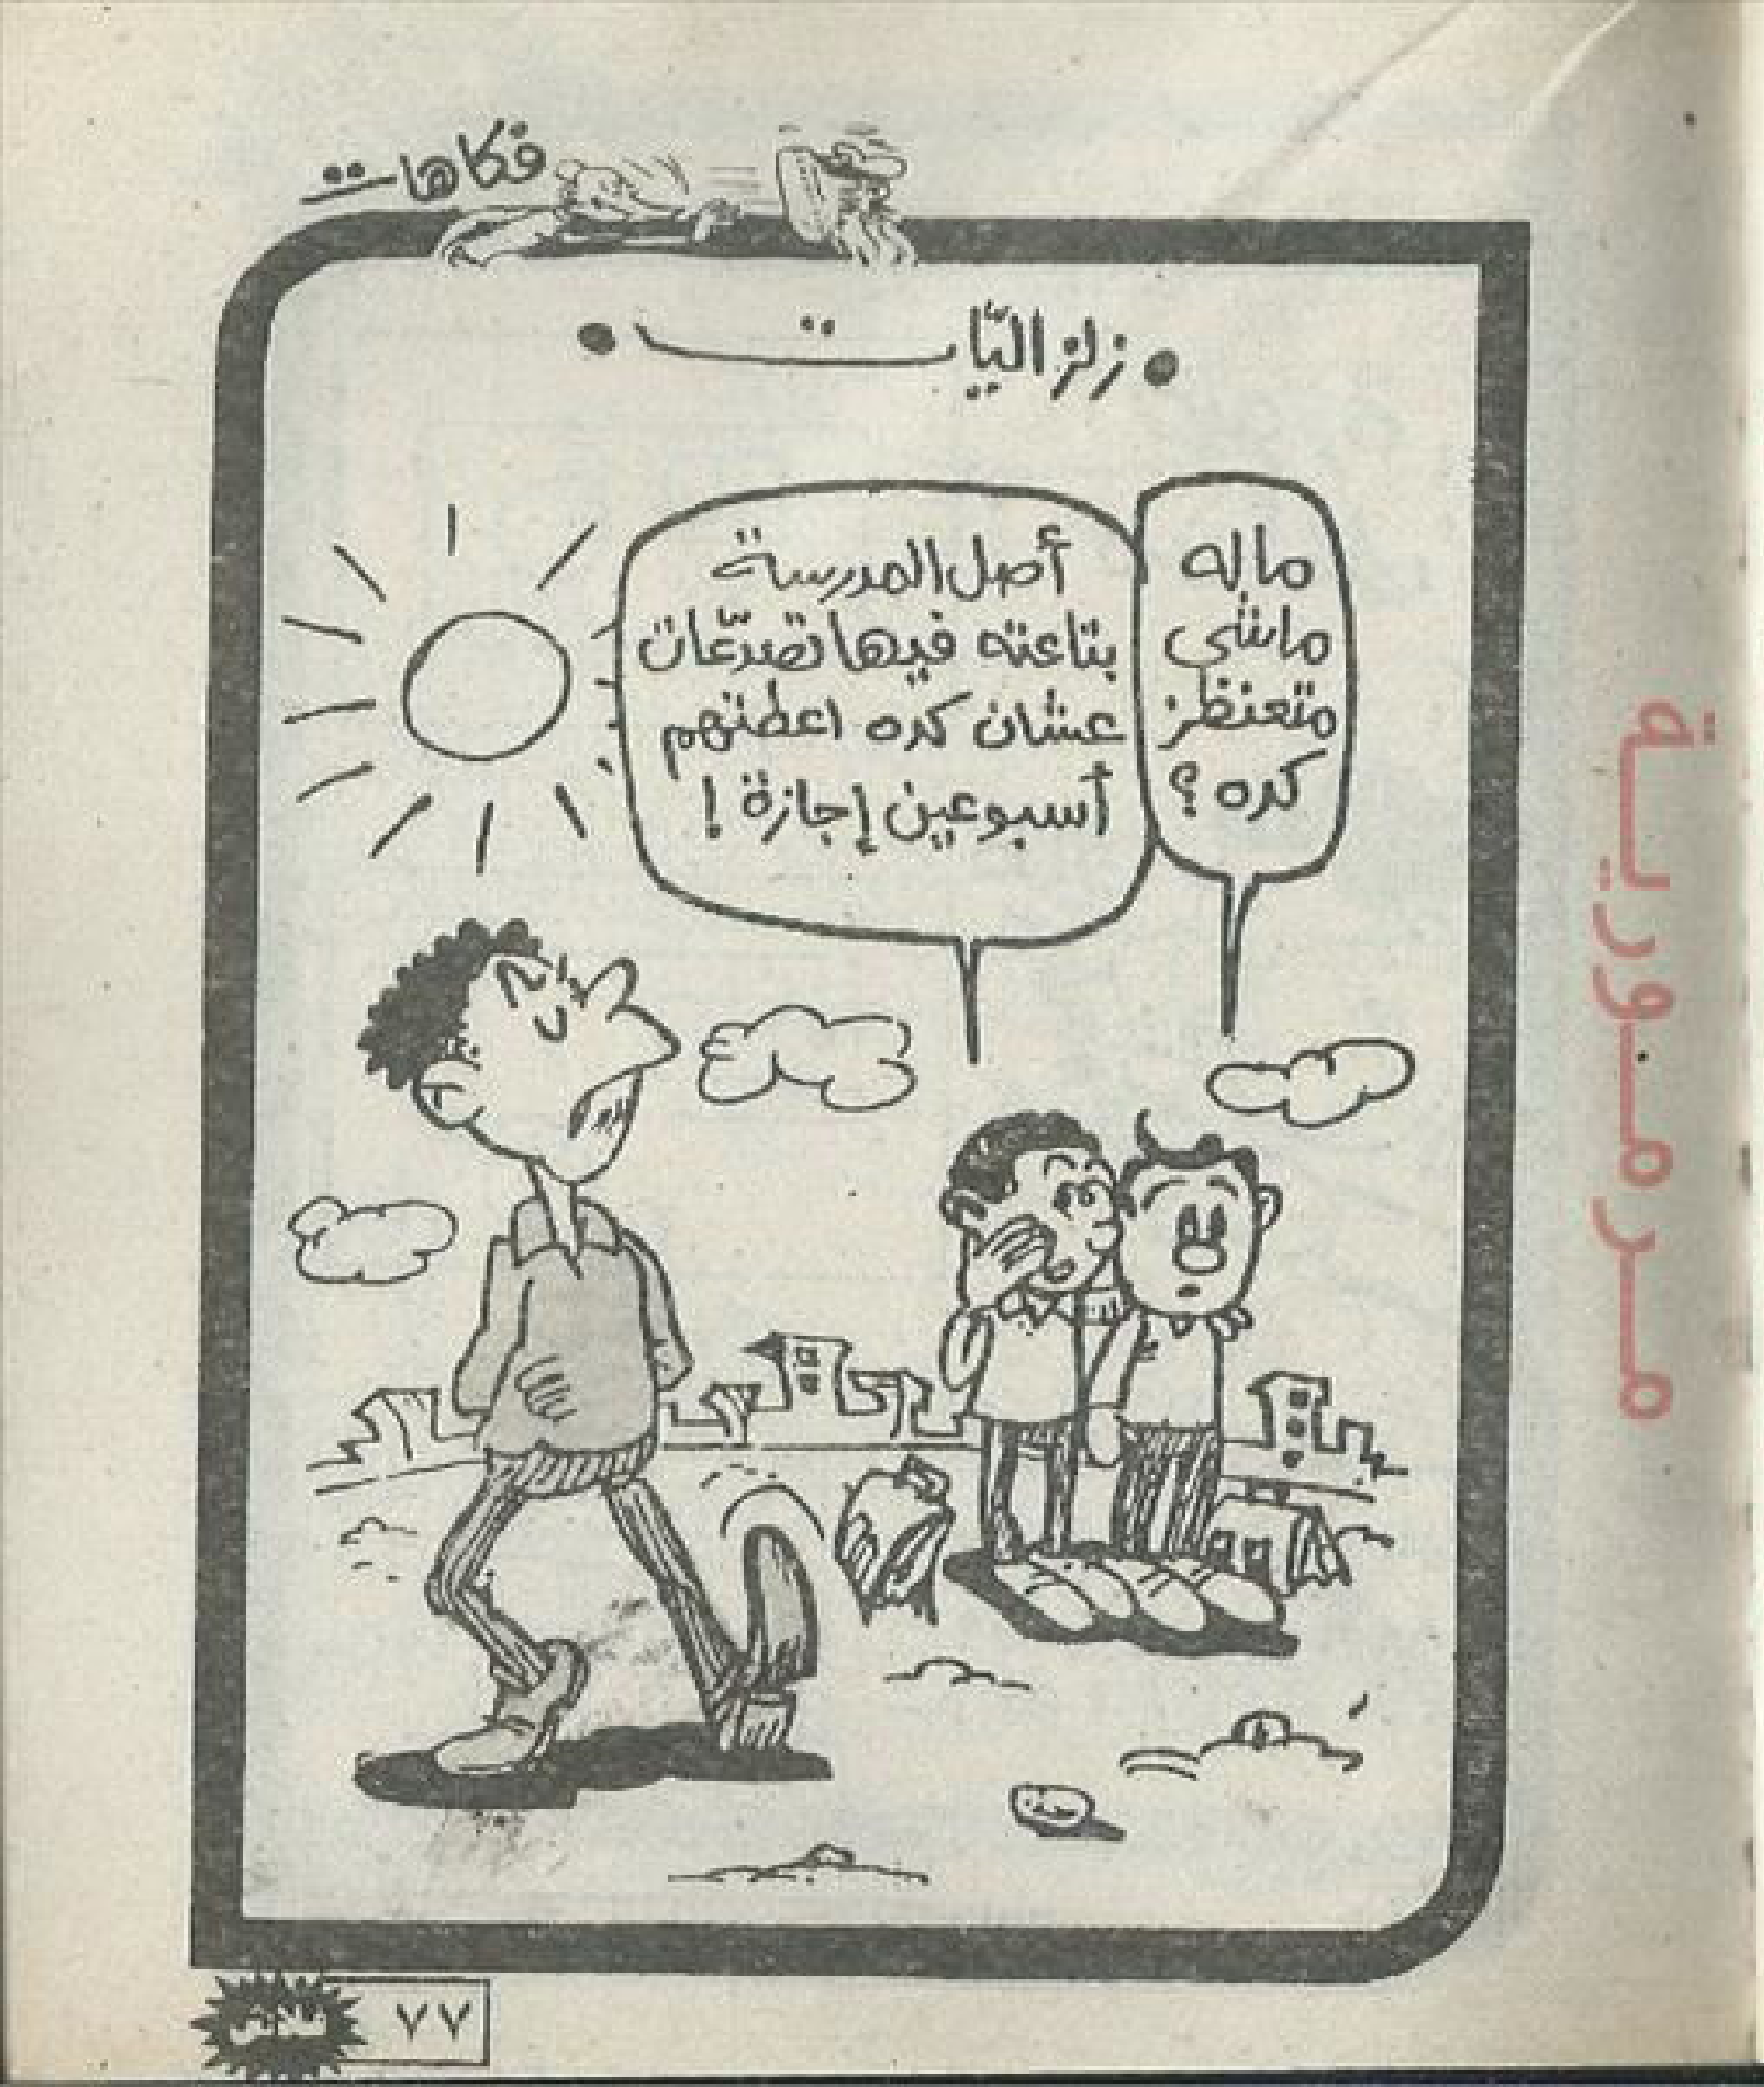 فكاهات
• زلزاليّات •
ماله
ماشي
متعنظز
كده ؟
أصل المدرسة
بتاعته فيها تصدّعات
عشان كده اعطتهم
أسبوعين إجازة !
مرمورية
فلاش
٧٧